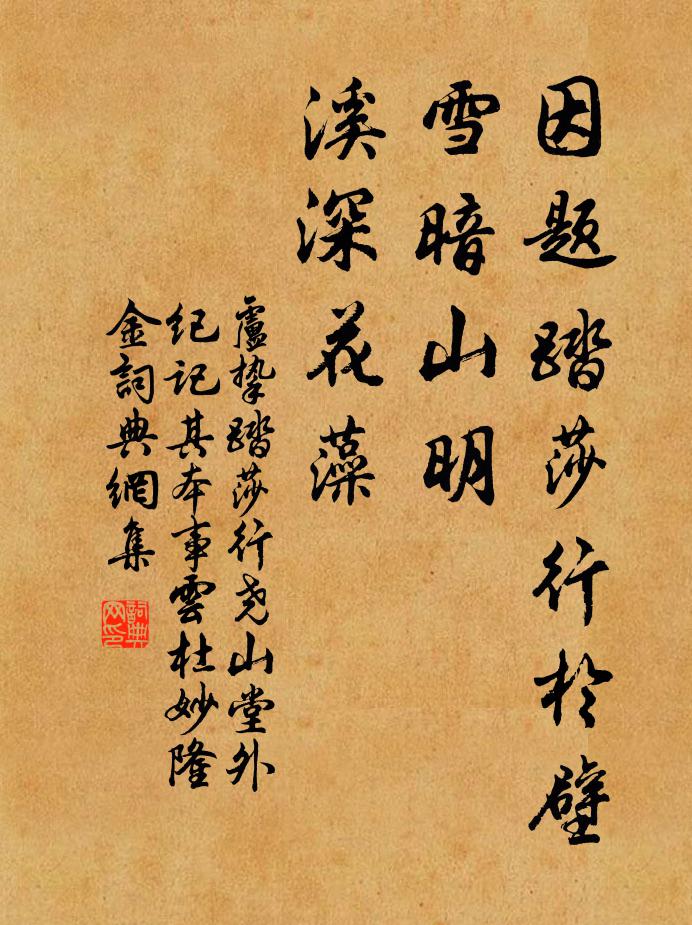 因题踏莎行於壁
雪暗山明
溪深花藻
盧挚踏莎行尧山堂外
纪记其本事雲杜妙隆
金詞典網集
詞典网印